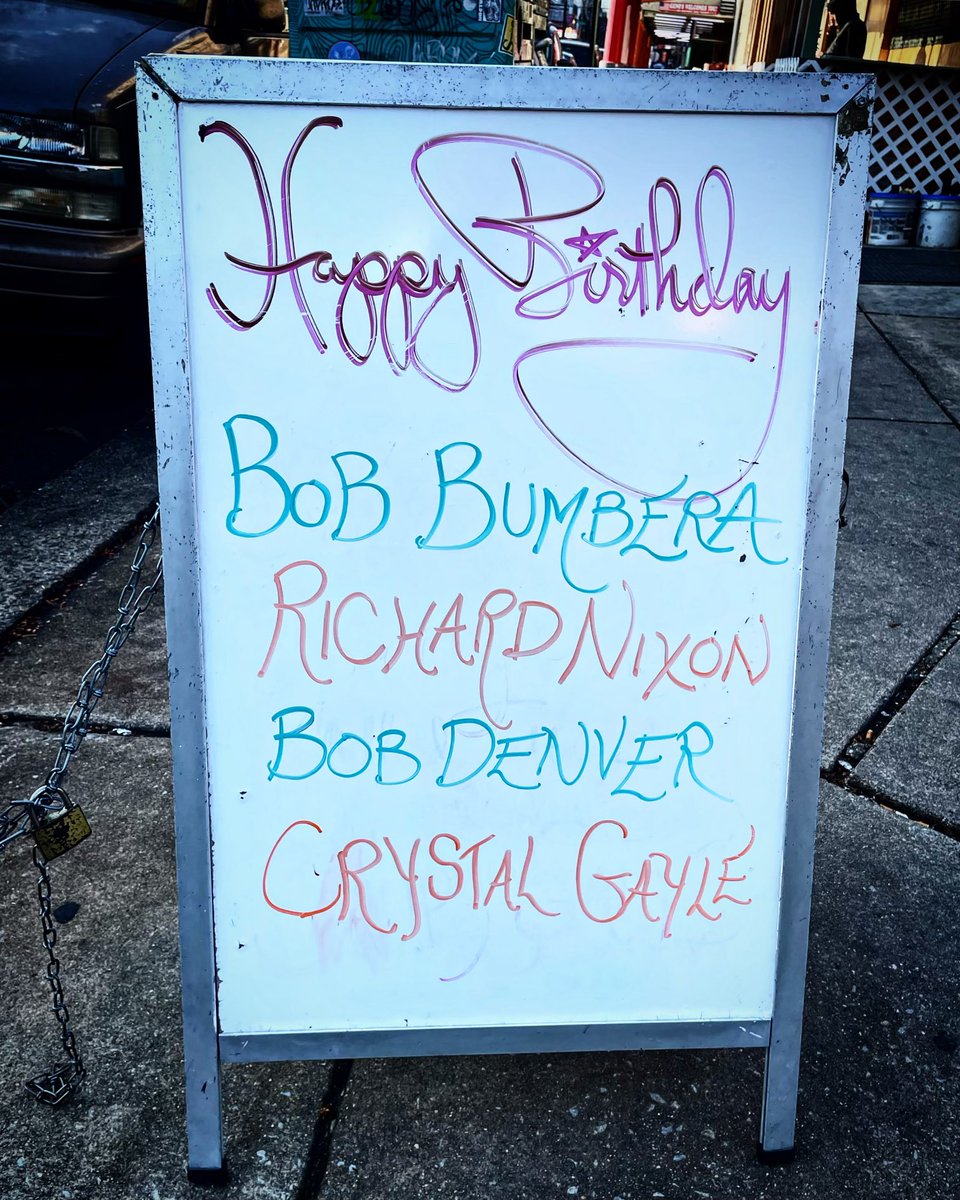 Happy Birthday
BOB BUMBERA
RICHARD NIXON
BOB DENVER
CRYSTAL GAYLE